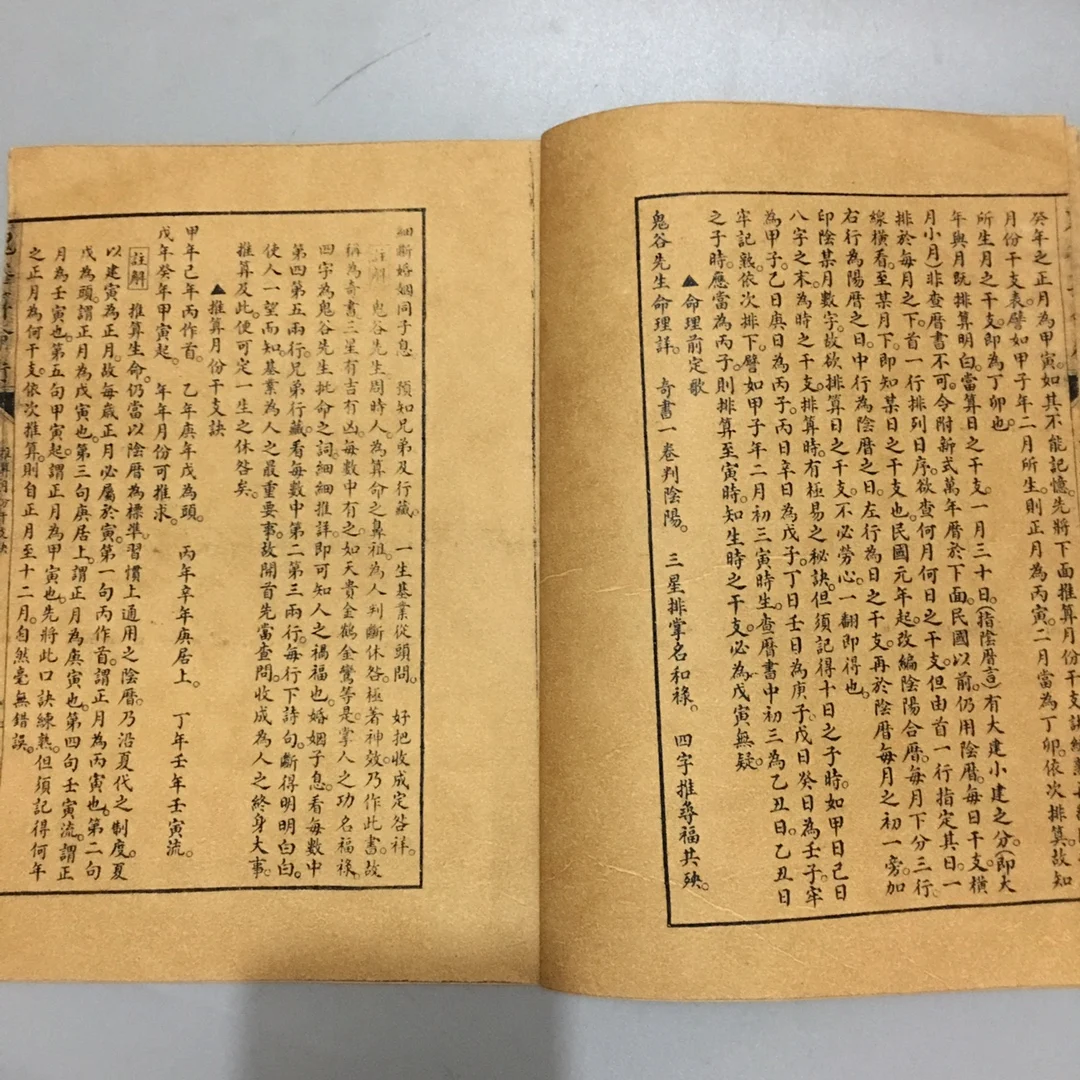 癸年之正月為甲寅。如其不能記憶。先將下面推算月份干支訣
月份干支表。譬如甲子年二月所生。則正月為丙寅。二月當為丁卯。依次排算。故知
所生月之干支。即為丁卯也。
年與月既排算明白。當算日之干支。一月三十日。(指陰曆言)有大建小建之分。(即大
月小月)非查曆書不可。今附新式萬年曆於下面。民國以前。仍用陰曆每日干支。橫
排於每月之下。首一行排列日序。欲查何月何日之干支。但由首一行指定其日。一
線橫看至某月下。即知某日之干支也。民國元年起。改編陰陽合曆。每月下分三行。
右行為陽曆之日。中行為陰曆之日。左行為日之干支。再於陰曆每月之初一旁。加
印陰某月數字。故欲排算日之干支。不必勞心。一翻即得也。
八字之末為時之干支。排算時。有極易之秘訣。但須記得十日之子時。如甲日己日
為甲子。乙日庚日為丙子。丙日辛日為戊子。丁日壬日為庚子。戊日癸日為壬子。牢
牢記熟。依次排下。譬如甲子年二月初三寅時生。查曆書中初三為乙丑日。乙丑日
之子時。應當為丙子。則排算至寅時。知生時之干支。必為戊寅無疑。
▲命理前定歌
鬼谷先生命理詳。　奇書一卷判陰陽。　三星排掌名和祿。　四字推尋福共殃。
細斷婚姻同子息　預知兄弟及行藏。　一生基業從頭問。　好把收成定咎祥。
註解　鬼谷先生周時人。為算命之鼻祖。為人判斷休咎。極著神效。乃作此書。故
稱為奇書。三星有吉有凶。每數中有之。如天貴金鶴金鸞等是。掌人之功名福祿。
四字為鬼谷先生批命之詞。細細推詳。即可知人之禍福也。婚姻子息。看每數中
第四第五兩行。兄弟行藏。看每數中第二第三兩行。每行下詩句。斷得明明白白。
使人一望而知。基業為人之最重要事。故開首先當查問。收成為人之終身大事。
推算及此。便可定一生之休咎矣。
▲推算月份干支訣
甲年己年丙作首。　乙年庚年戊為頭。　丙年辛年庚居上。　丁年壬年壬寅流。
戊年癸年甲寅起。　年年月份可推求。
註解　推算生命。仍當以陰曆為標準。習慣上通用之陰曆。乃沿夏代之制度。夏
以建寅為正月。故每歲正月必屬於寅。第一句丙作首。謂正月為丙寅也。第二句
戊為頭。謂正月為戊寅也。第三句庚居上。謂正月為庚寅也。第四句壬寅流。謂正
月為壬寅也。第五句甲寅起。謂正月為甲寅也。先將此口訣練熟。但須記得何年
之正月為何干支。依次推算。則自正月至十二月。自然毫無錯誤。